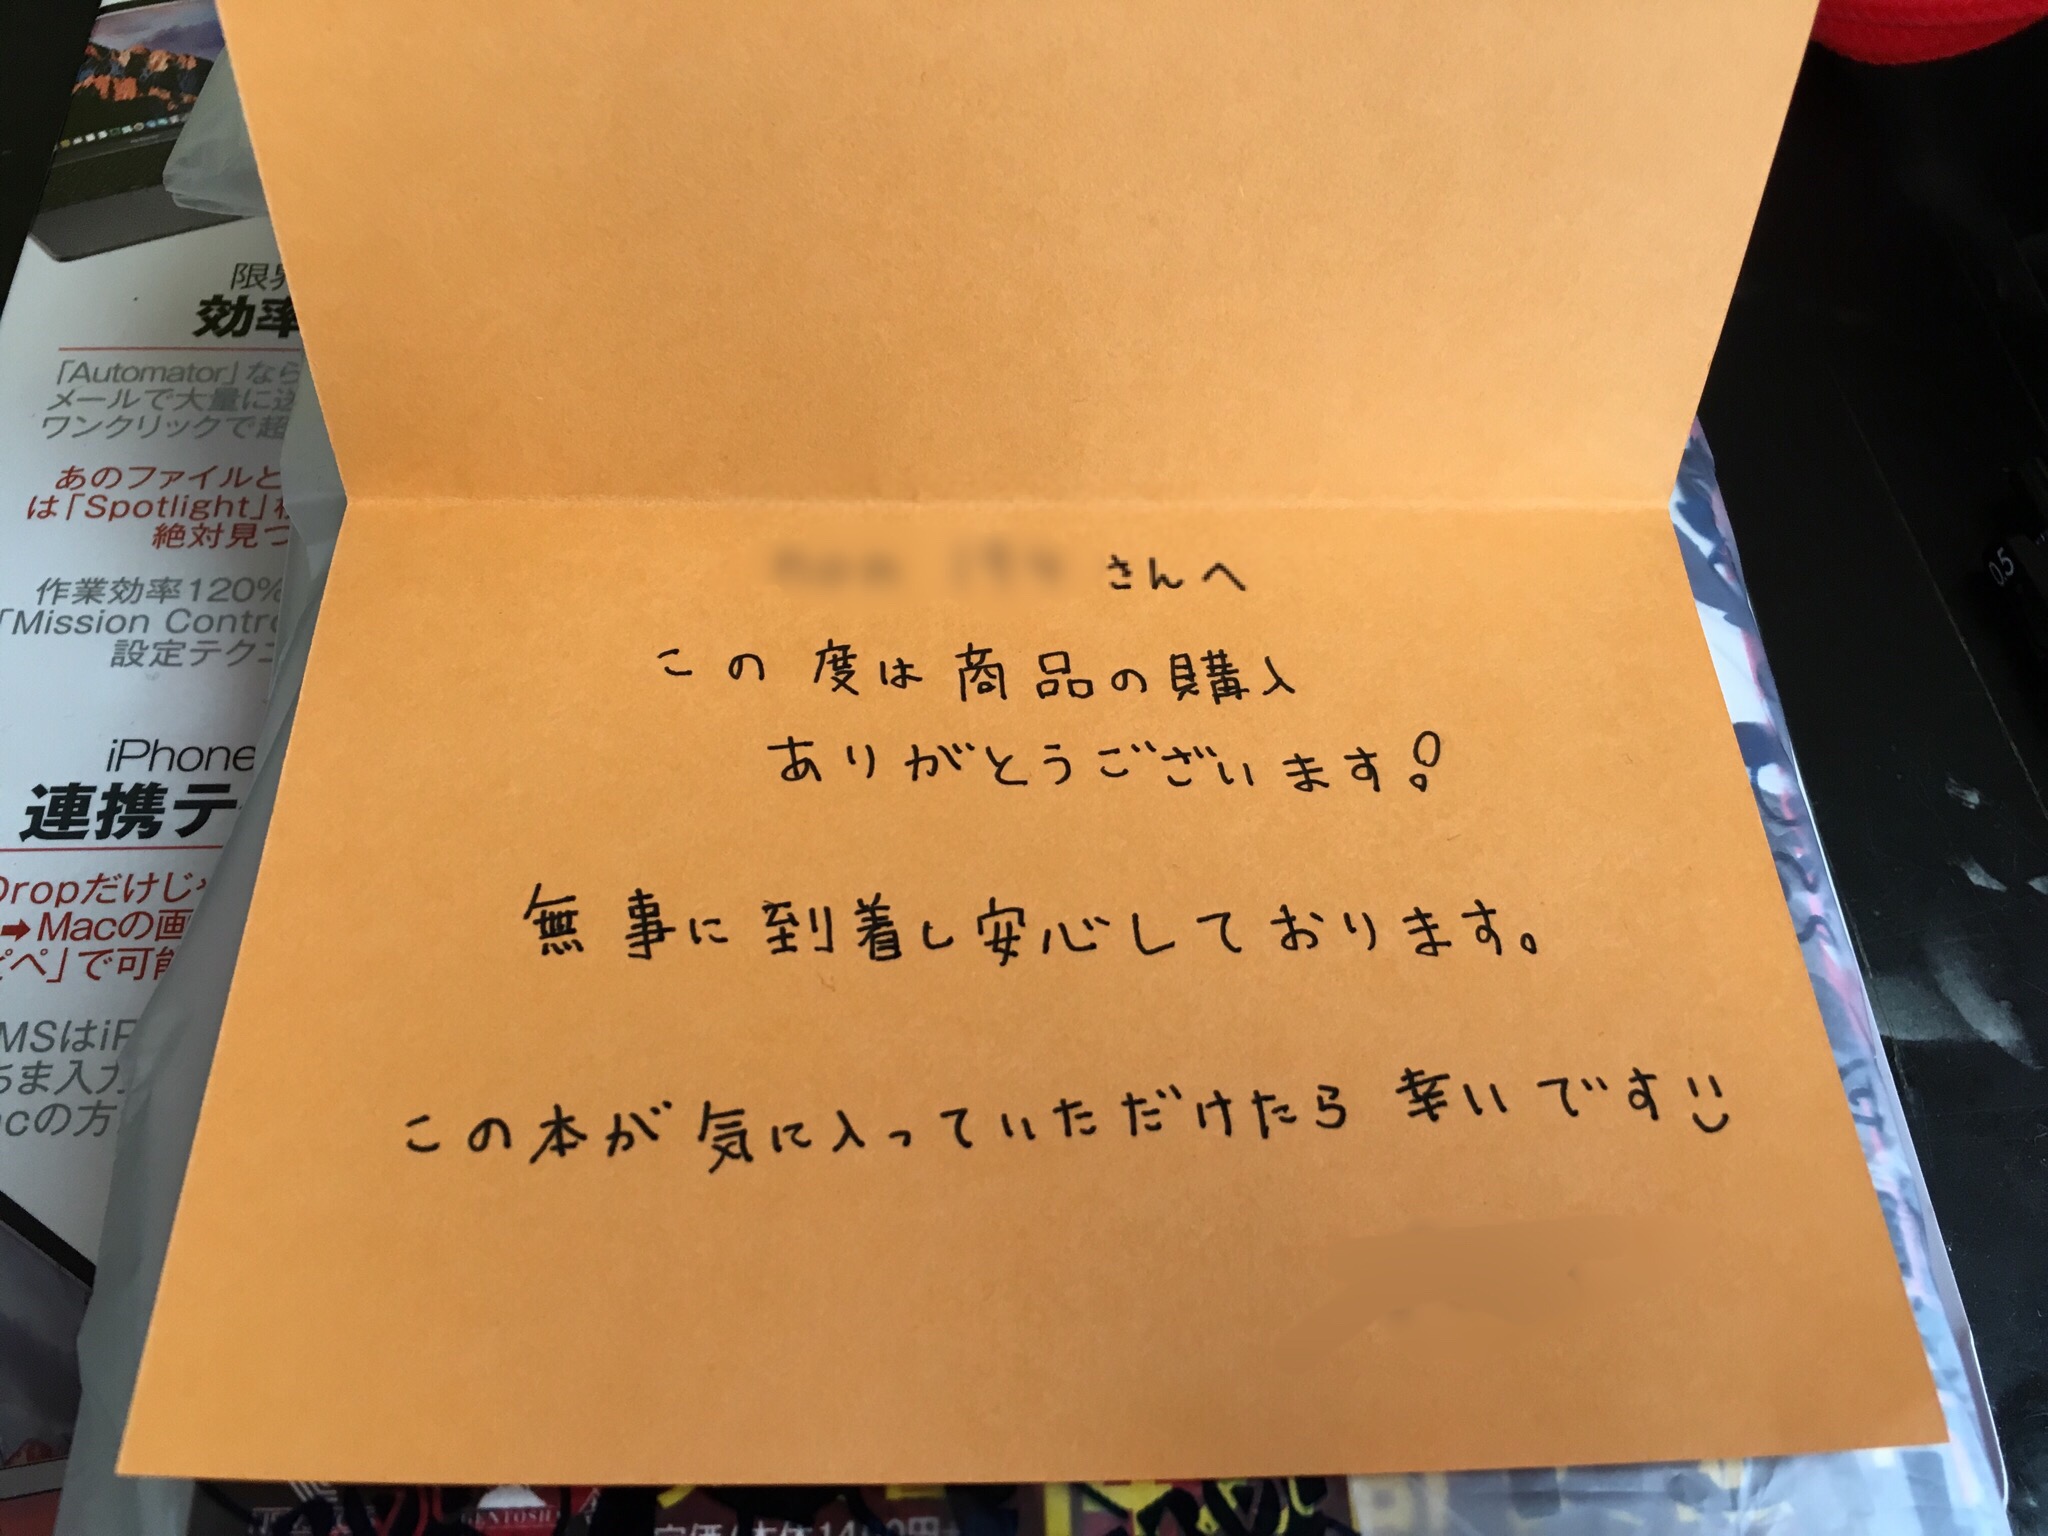 さんへ
この度は商品の購入
ありがとうございます!
無事に到着し安心しております。
この本が気に入っていただけたら幸いです
効率
「Automator」なら
メールで大量に送
ワンクリックで超
あのファイルと
は「Spotlight」
絶対見つ
作業効率120%
「Mission Contro
設定テクニ
iPhone
連携テ
Dropだけじゃ
➡Macの画
ピペ」で可能
MSはiP
ちま入力
acの方
0.5